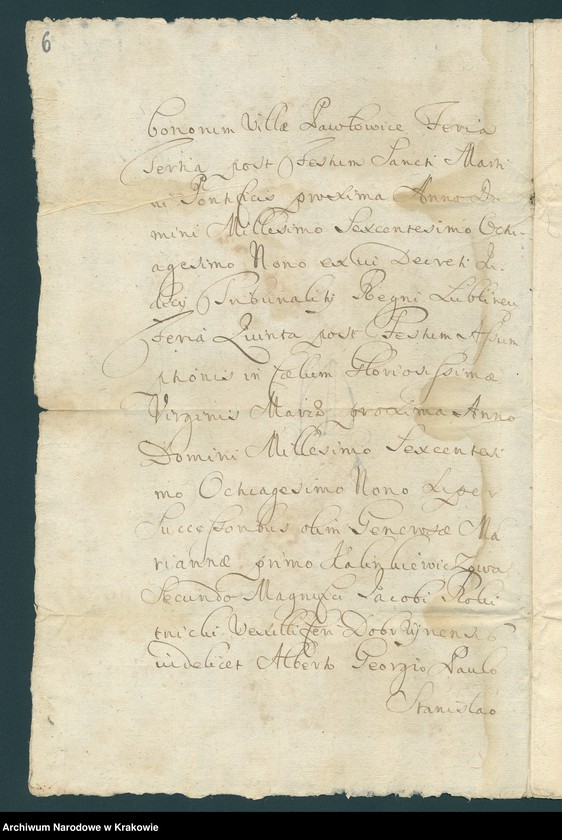 6
bonorum Villæ Pawłowice Feria
Tertia post Festum Sancti Marti
ni Pontificis proxima Anno Do
mini Millesimo Sexcentesimo Octu-
agesimo Nono ex vi Decreti Ju-
dicij Tribunalitij Regni Lublinen
Feria Quinta post Festum Assum
ptionis in Cœlum Gloriosissimæ
Virginis Mariæ proxima Anno
Domini Millesimo Sexcentesi
mo Octuagesimo Nono
Successoribus olim Generosæ Ma
riannæ primo
Secundo Magnifici Jacobi Roki
tnicki Vexilliferi Dobrzynensis
videlicet Alberto Georgio Paulo
Stanislao
Archiwum Narodowe w Krakowie